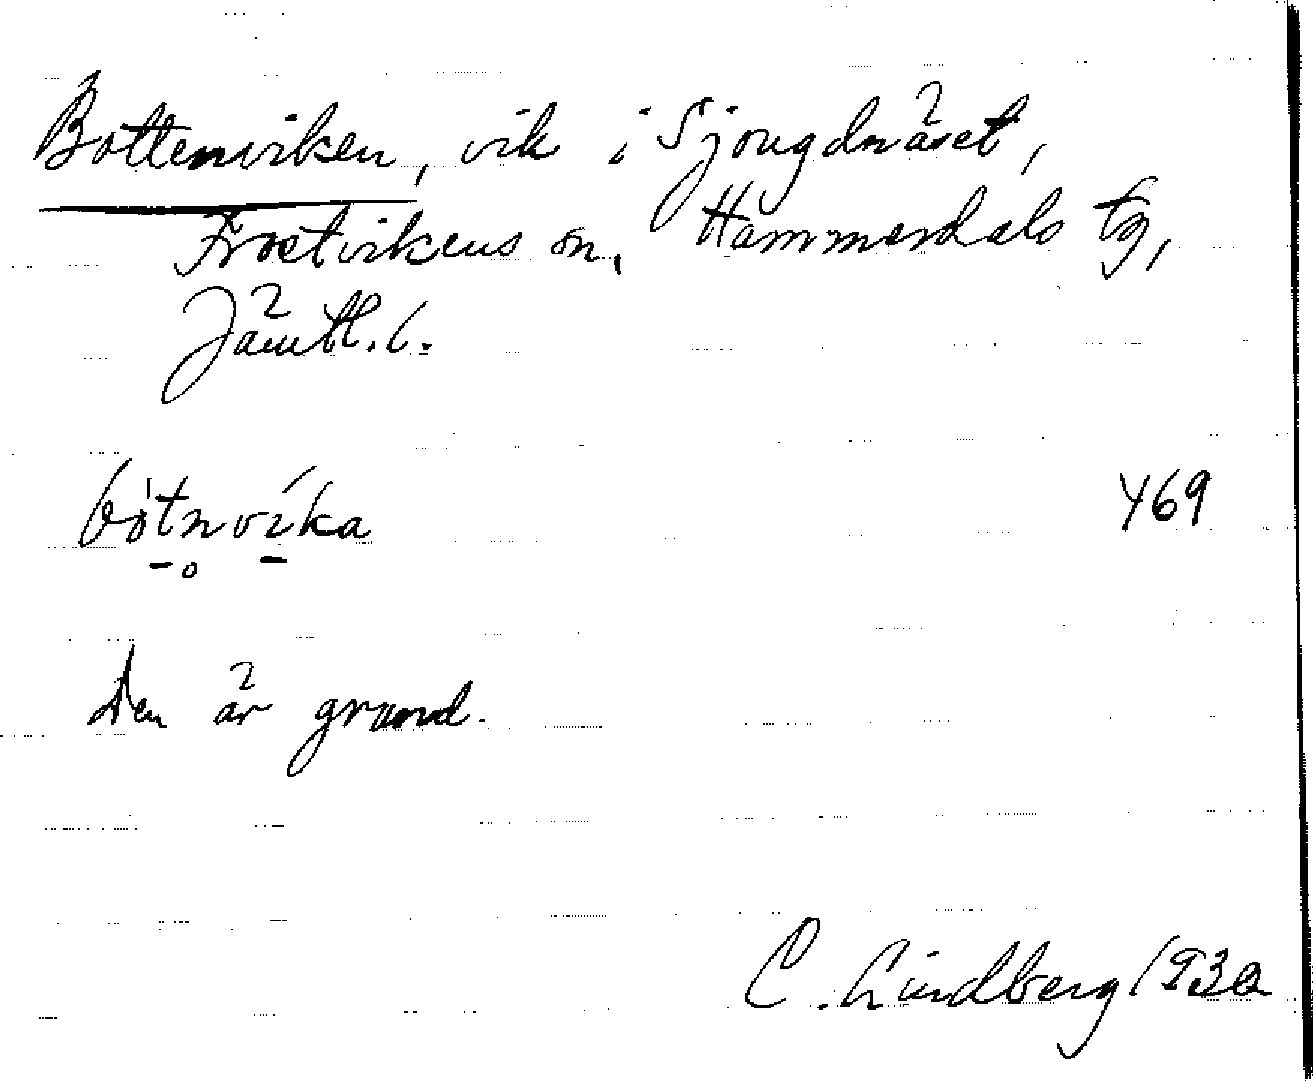 Bottenviken, vik i Sjougdnäset,
Frostvikens sn, Hammerdals tg,
Jämtl. l.
bòtnvíka 469
Den är grund.
C. Lindberg 1930